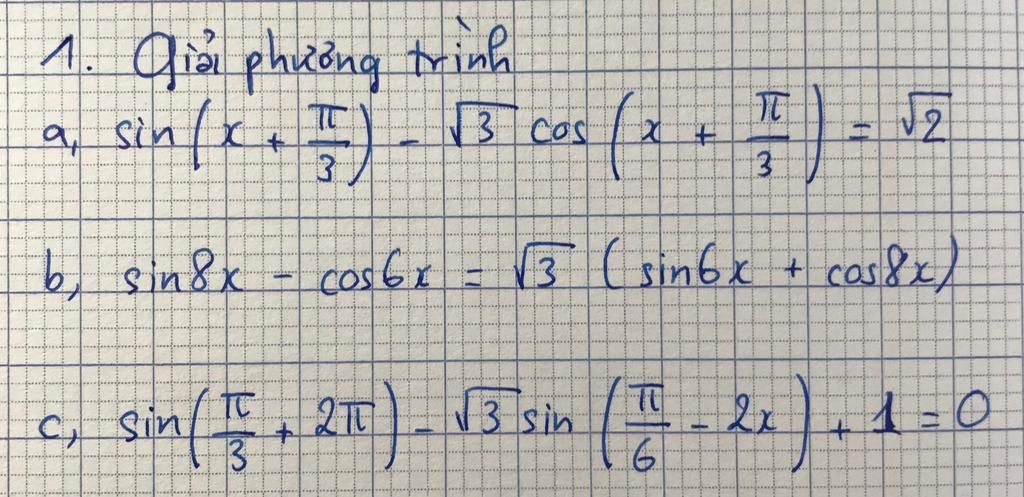 1. Giải phương trình
a, sin(x + π/3) - √3 cos(x + π/3) = √2
b, sin8x - cos6x = √3 (sin6x + cos8x)
c, sin(π/3 + 2π) - √3 sin(π/6 - 2x) + 1 = 0